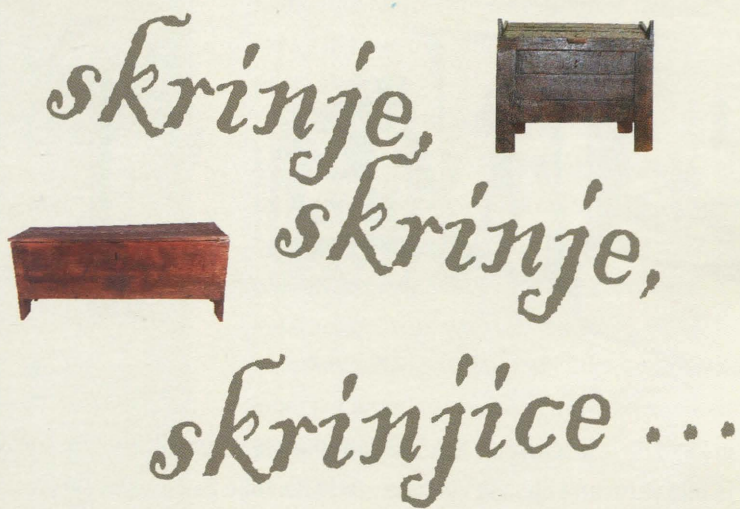 skrinje,
skrinje,
skrinjice ...